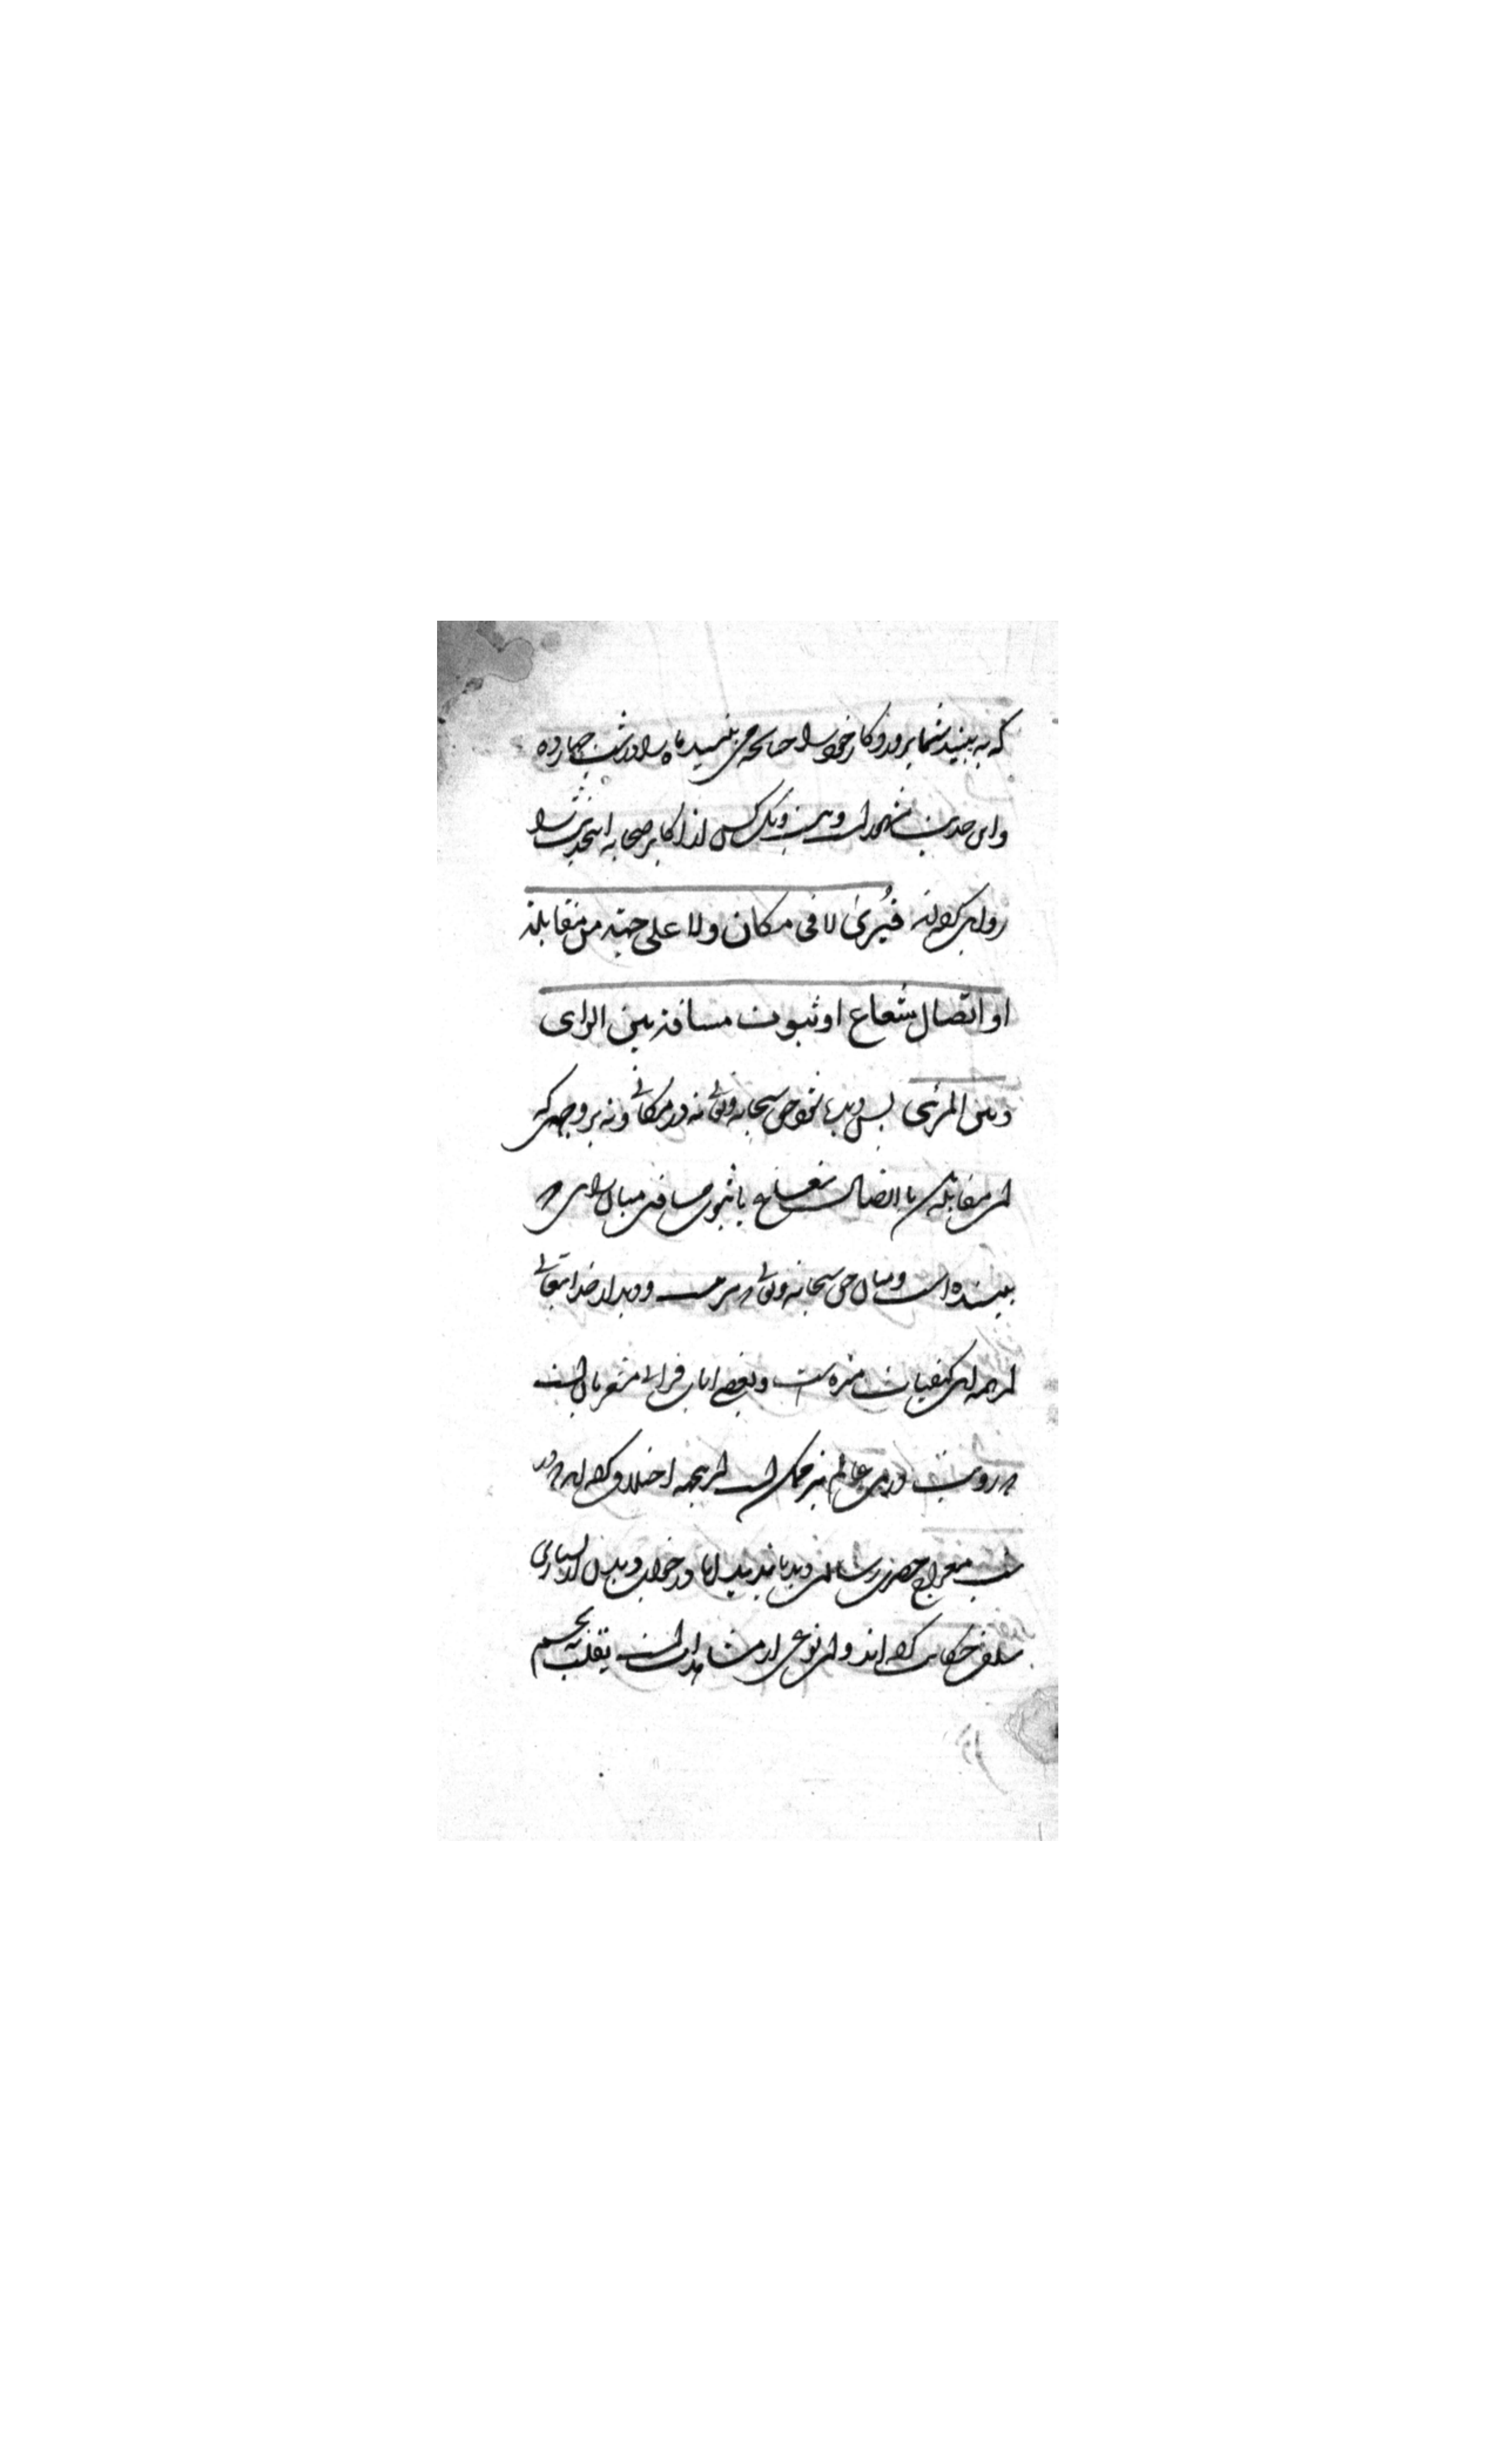 که به بینید شما پروردکار خود را چنانچه می بینید ماه را در شب چهارده
و این حدیث مشهور است و بیست و یک کس از اکابر صحابه اینحدیث را
روایت کرده اند فیُریٰ لا فی مکان ولا علی جهته من مقابلة
او اتّصال شعاع او ثبوت مسافة بین الرای
وبین المرئی پس دیده شود حق سبحانه وتعالی نه در مکانی و نه بر وجهی که
از مقابله یا اتصال شعاع یا ثبوت مسافتی میان رای که
بیننده است و میان حق سبحانه وتعالی که مرئیست و دیدار خدایتعالی
از همه این کیفیات منزه است و بعضی آیات قرآنی مشعر بآن است
که رویت درین عالم نیز ممکن است از اینجهة اختلاف کرده اند که در
شب معراج حضرت رسالت دید یا ندید اما در خواب دیدن از بسیاری
سلف حکایت کرده اند و این نوعی از مشاهده است بقلب نه بچشم